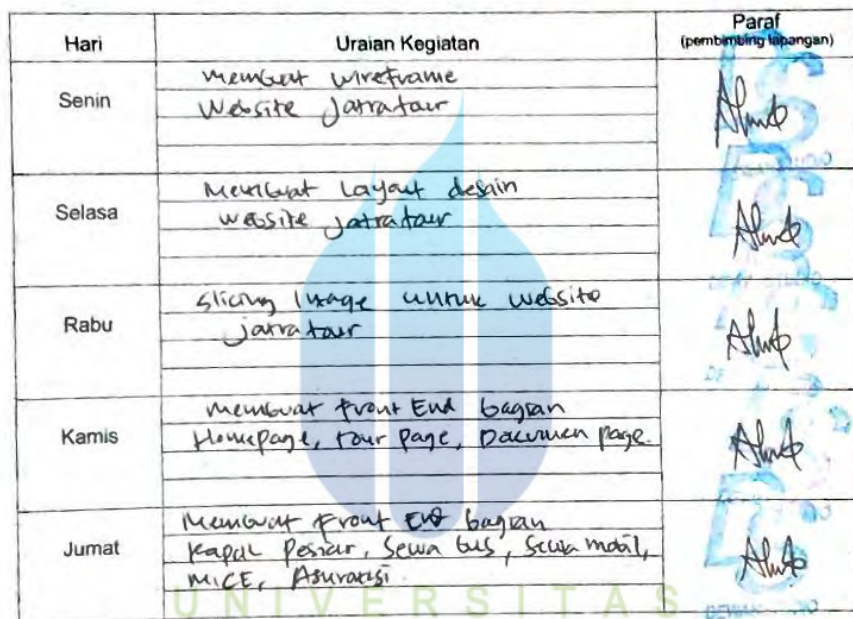 Hari
Uraian Kegiatan
Paraf
(pembimbing lapangan)
Senin
Membuat wireframe
Website jatratour
Selasa
Membuat Layout desain
website jatratour
Rabu
Slicing Image untuk website
jatratour
Kamis
Membuat Front End bagian
Homepage, tour page, Dokumen page.
Jumat
Membuat Front End bagian
Kapal Pesiar, Sewa bus, Sewa mobil,
MICE, Asuransi
UNIVERSITAS